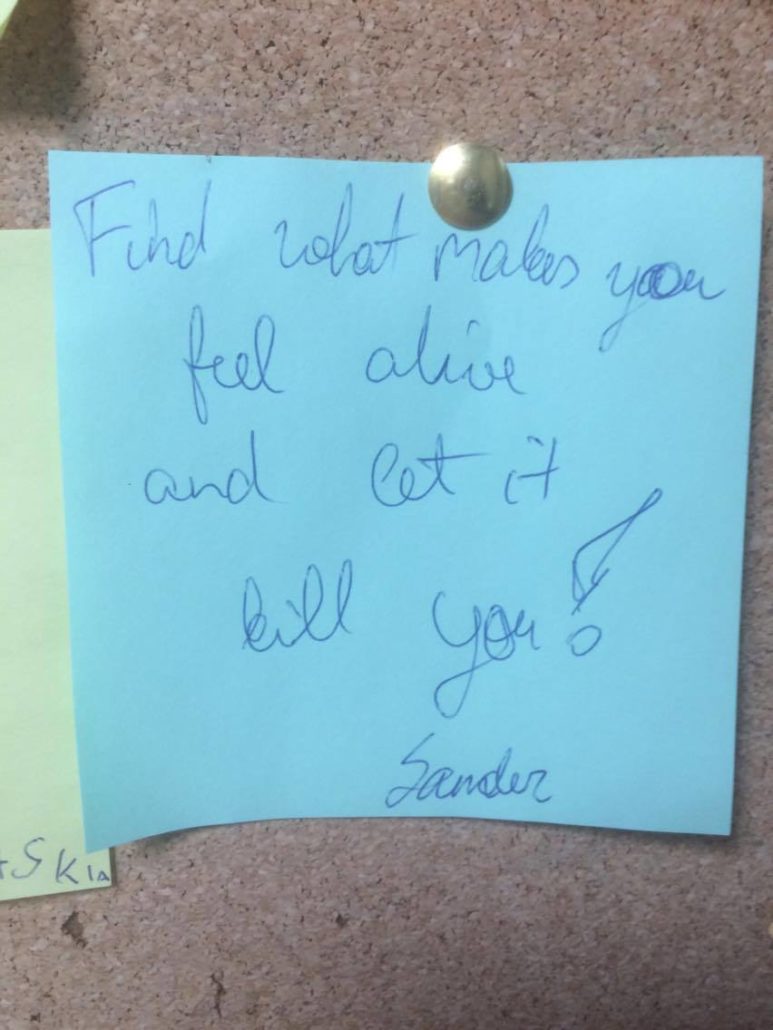 Find what makes you
feel alive
and let it
kill you!
Sander